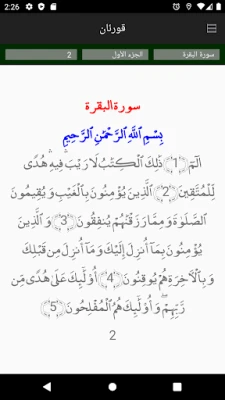 2:26
قورئان
سورة البقرة
الجزء الأول
2
سورة البقرة
بِسْمِ ٱللَّهِ ٱلرَّحْمَٰنِ ٱلرَّحِيمِ
الٓمٓ ﴿1﴾ ذَٰلِكَ ٱلْكِتَٰبُ لَا رَيْبَ ۛ فِيهِ ۛ هُدًى
لِّلْمُتَّقِينَ ﴿2﴾ ٱلَّذِينَ يُؤْمِنُونَ بِٱلْغَيْبِ وَيُقِيمُونَ
ٱلصَّلَوٰةَ وَمِمَّا رَزَقْنَٰهُمْ يُنفِقُونَ ﴿3﴾ وَٱلَّذِينَ
يُؤْمِنُونَ بِمَآ أُنزِلَ إِلَيْكَ وَمَآ أُنزِلَ مِن قَبْلِكَ
وَبِٱلْءَاخِرَةِ هُمْ يُوقِنُونَ ﴿4﴾ أُو۟لَٰٓئِكَ عَلَىٰ هُدًى مِّن
رَّبِّهِمْ ۖ وَأُو۟لَٰٓئِكَ هُمُ ٱلْمُفْلِحُونَ ﴿5﴾
2